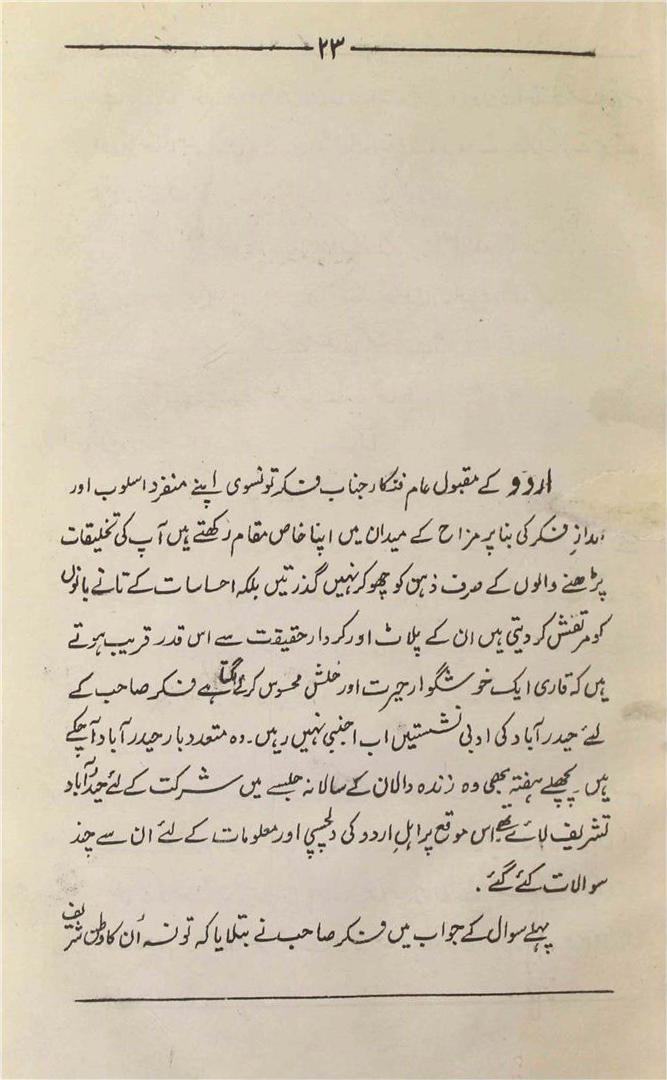 ۲۳
اردو کے مقبول عام فنکار جناب فکر تونسوی اپنے منفرد اسلوب اور
اندازِ فکر کی بنا پر مزاح کے میدان میں اپنا خاص مقام رکھتے ہیں آپ کی تخلیقات
پڑھنے والوں کے صرف ذہن کو چھو کر نہیں گذرتیں بلکہ احساسات کے تانے بانوں
کو مرتعش کر دیتی ہیں ان کے پلاٹ اور کردار حقیقت سے اس قدر قریب ہوتے
ہیں کہ قاری ایک خوشگوار حیرت اور خلش محسوس کرنے لگتا ہے فکر صاحب کے
لئے حیدرآباد کی ادبی نشستیں اب اجنبی نہیں رہیں۔ وہ متعدد بار حیدرآباد آچکے
ہیں۔ پچھلے ہفتہ بھی وہ زندہ دلان کے سالانہ جلسے میں شرکت کے لئے حیدرآباد
تشریف لائے تھے اس موقع پر اہلِ اردو کی دلچسپی اور معلومات کے لئے ان سے چند
سوالات کئے گئے۔
پہلے سوال کے جواب میں فکر صاحب نے بتلایا کہ تونسہ اُن کا وطن شریف